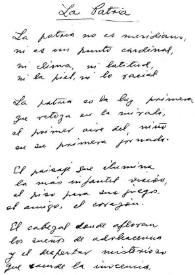 La Patria
La patria no es meridiano,
ni es un punto cardinal,
ni clima, ni latitud,
ni la piel, ni lo racial
La patria es la luz primera
que retoza en la mirada,
el primer aire del niño
en su primera jornada.
El paisaje que ilumina
la más infantil
el piso para su juego,
el amigo, el corazón.
El cabezal donde afloran
los sueños de adolescencia
y el despertar misterioso
que la inocencia.